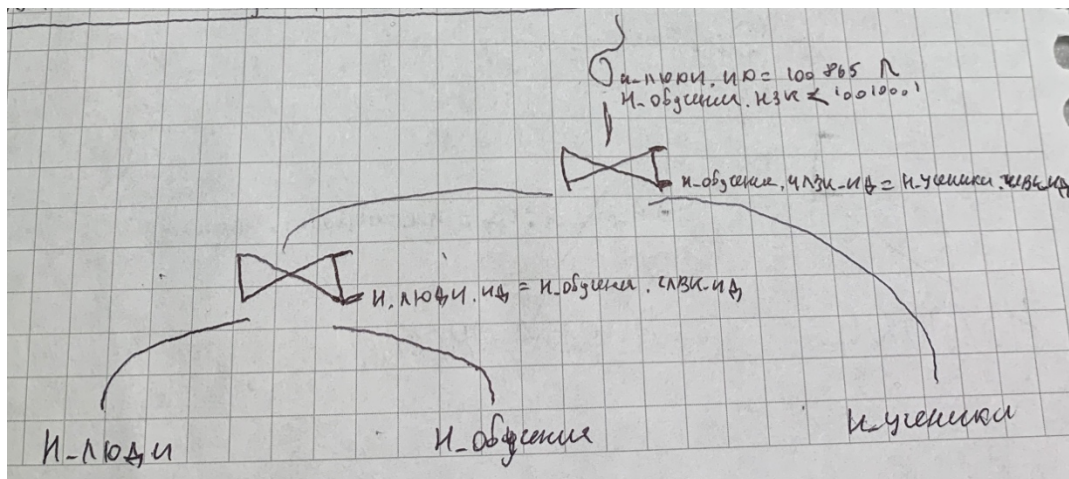 σ н_люди.ид = 100865 ∧
Н_обучения.нзк < '001000'
Н_обучения.члвк_ид = Н_ученики.члвк_ид
Н_люди.ид = Н_обучения.члвк_ид
Н_люди
Н_обучения
Н_ученики